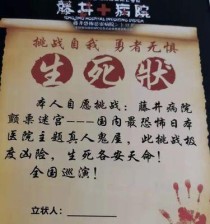 藤井✚病院
挑战自我 勇者无惧
生死狀
本人自愿挑战：藤井病院
颤栗迷宫----国内最恐怖日本
医院主题真人鬼屋，此挑战极
度凶险，生死各安天命！
全国巡演！
立状人：